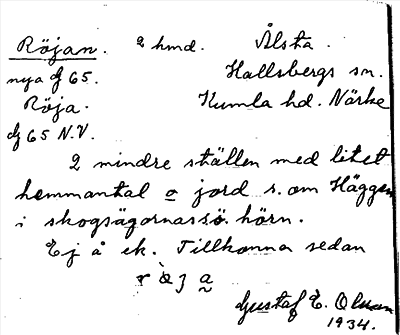 Röjan. 2 hmd. Ålsta.
nya Ef 65. Hallsbergs sn.
Röja. Kumla hd. Närke
Ef 65 N.V.
2 mindre ställen med litet
hemmantal o jord s. om Häggen
i skogsägornas sö. hörn.
Ej å ek. Tillkomna sedan
Gustaf E. Olsson
1934.